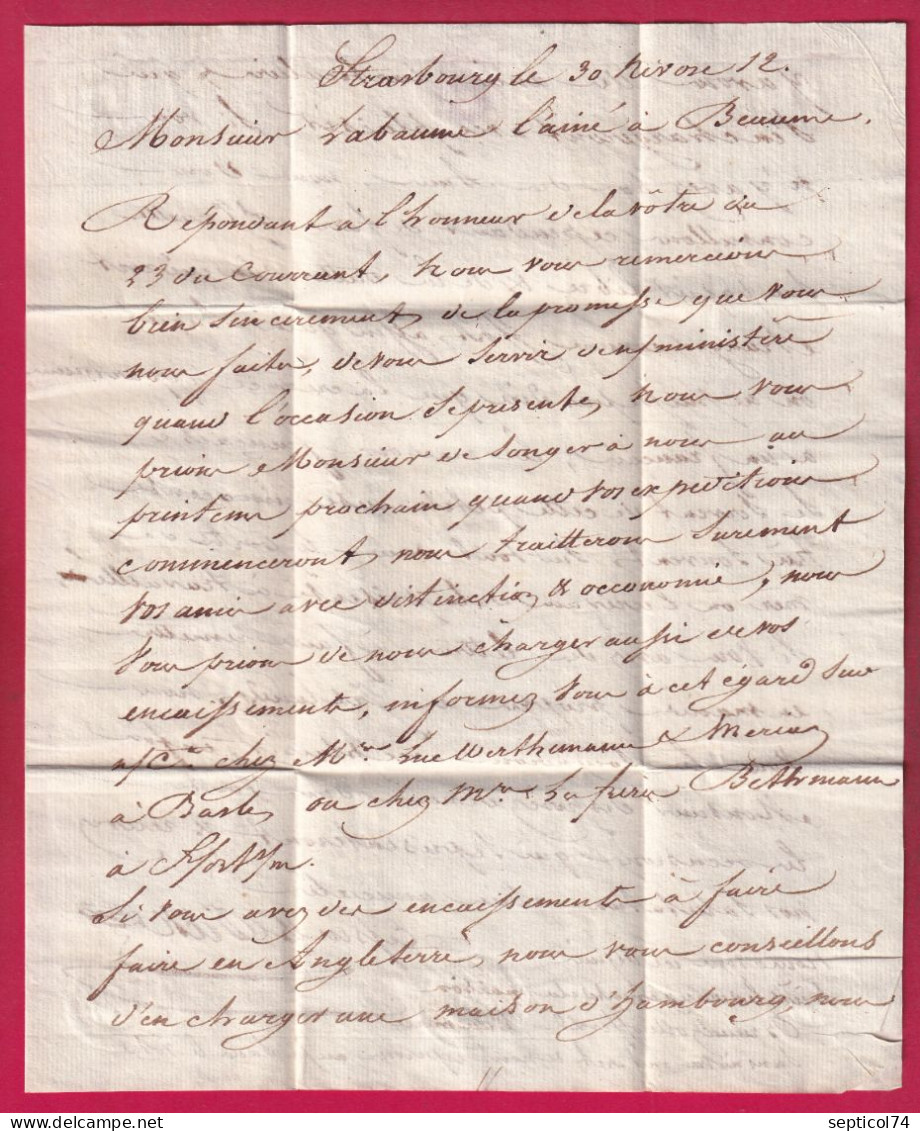 Strasbourg le 30 Nivose 12.
Monsieur Labaume l'ainé à Beaune.
Repondant à l'honneur de la vôtre du
23 du Courrant, nous vous remercions
bien sincerement, de la promesse que vous
nous faites, de vous servir de n/ ministère
quand l'occasion se presente, nous vous
prions Monsieur de songer à nous au
printems prochain quand vos expeditions
commenceront, nous traitterons surement
vos amis avec distinction & occonomie, nous
vous prions de nous charger aussi de vos
encaissements, informez vous à cet égard sur
n/ Cte. chez Mrs. Luc Werthemann & Merian
à Basle, ou chez Mrs. Les freres Bethmann
à Ffort s/m.
Si vous avez des encaissements à faire
faire en Angleterre, nous vous conseillons
d'en charger une maison d'Hambourg, nous
septicol74
delcampe.net